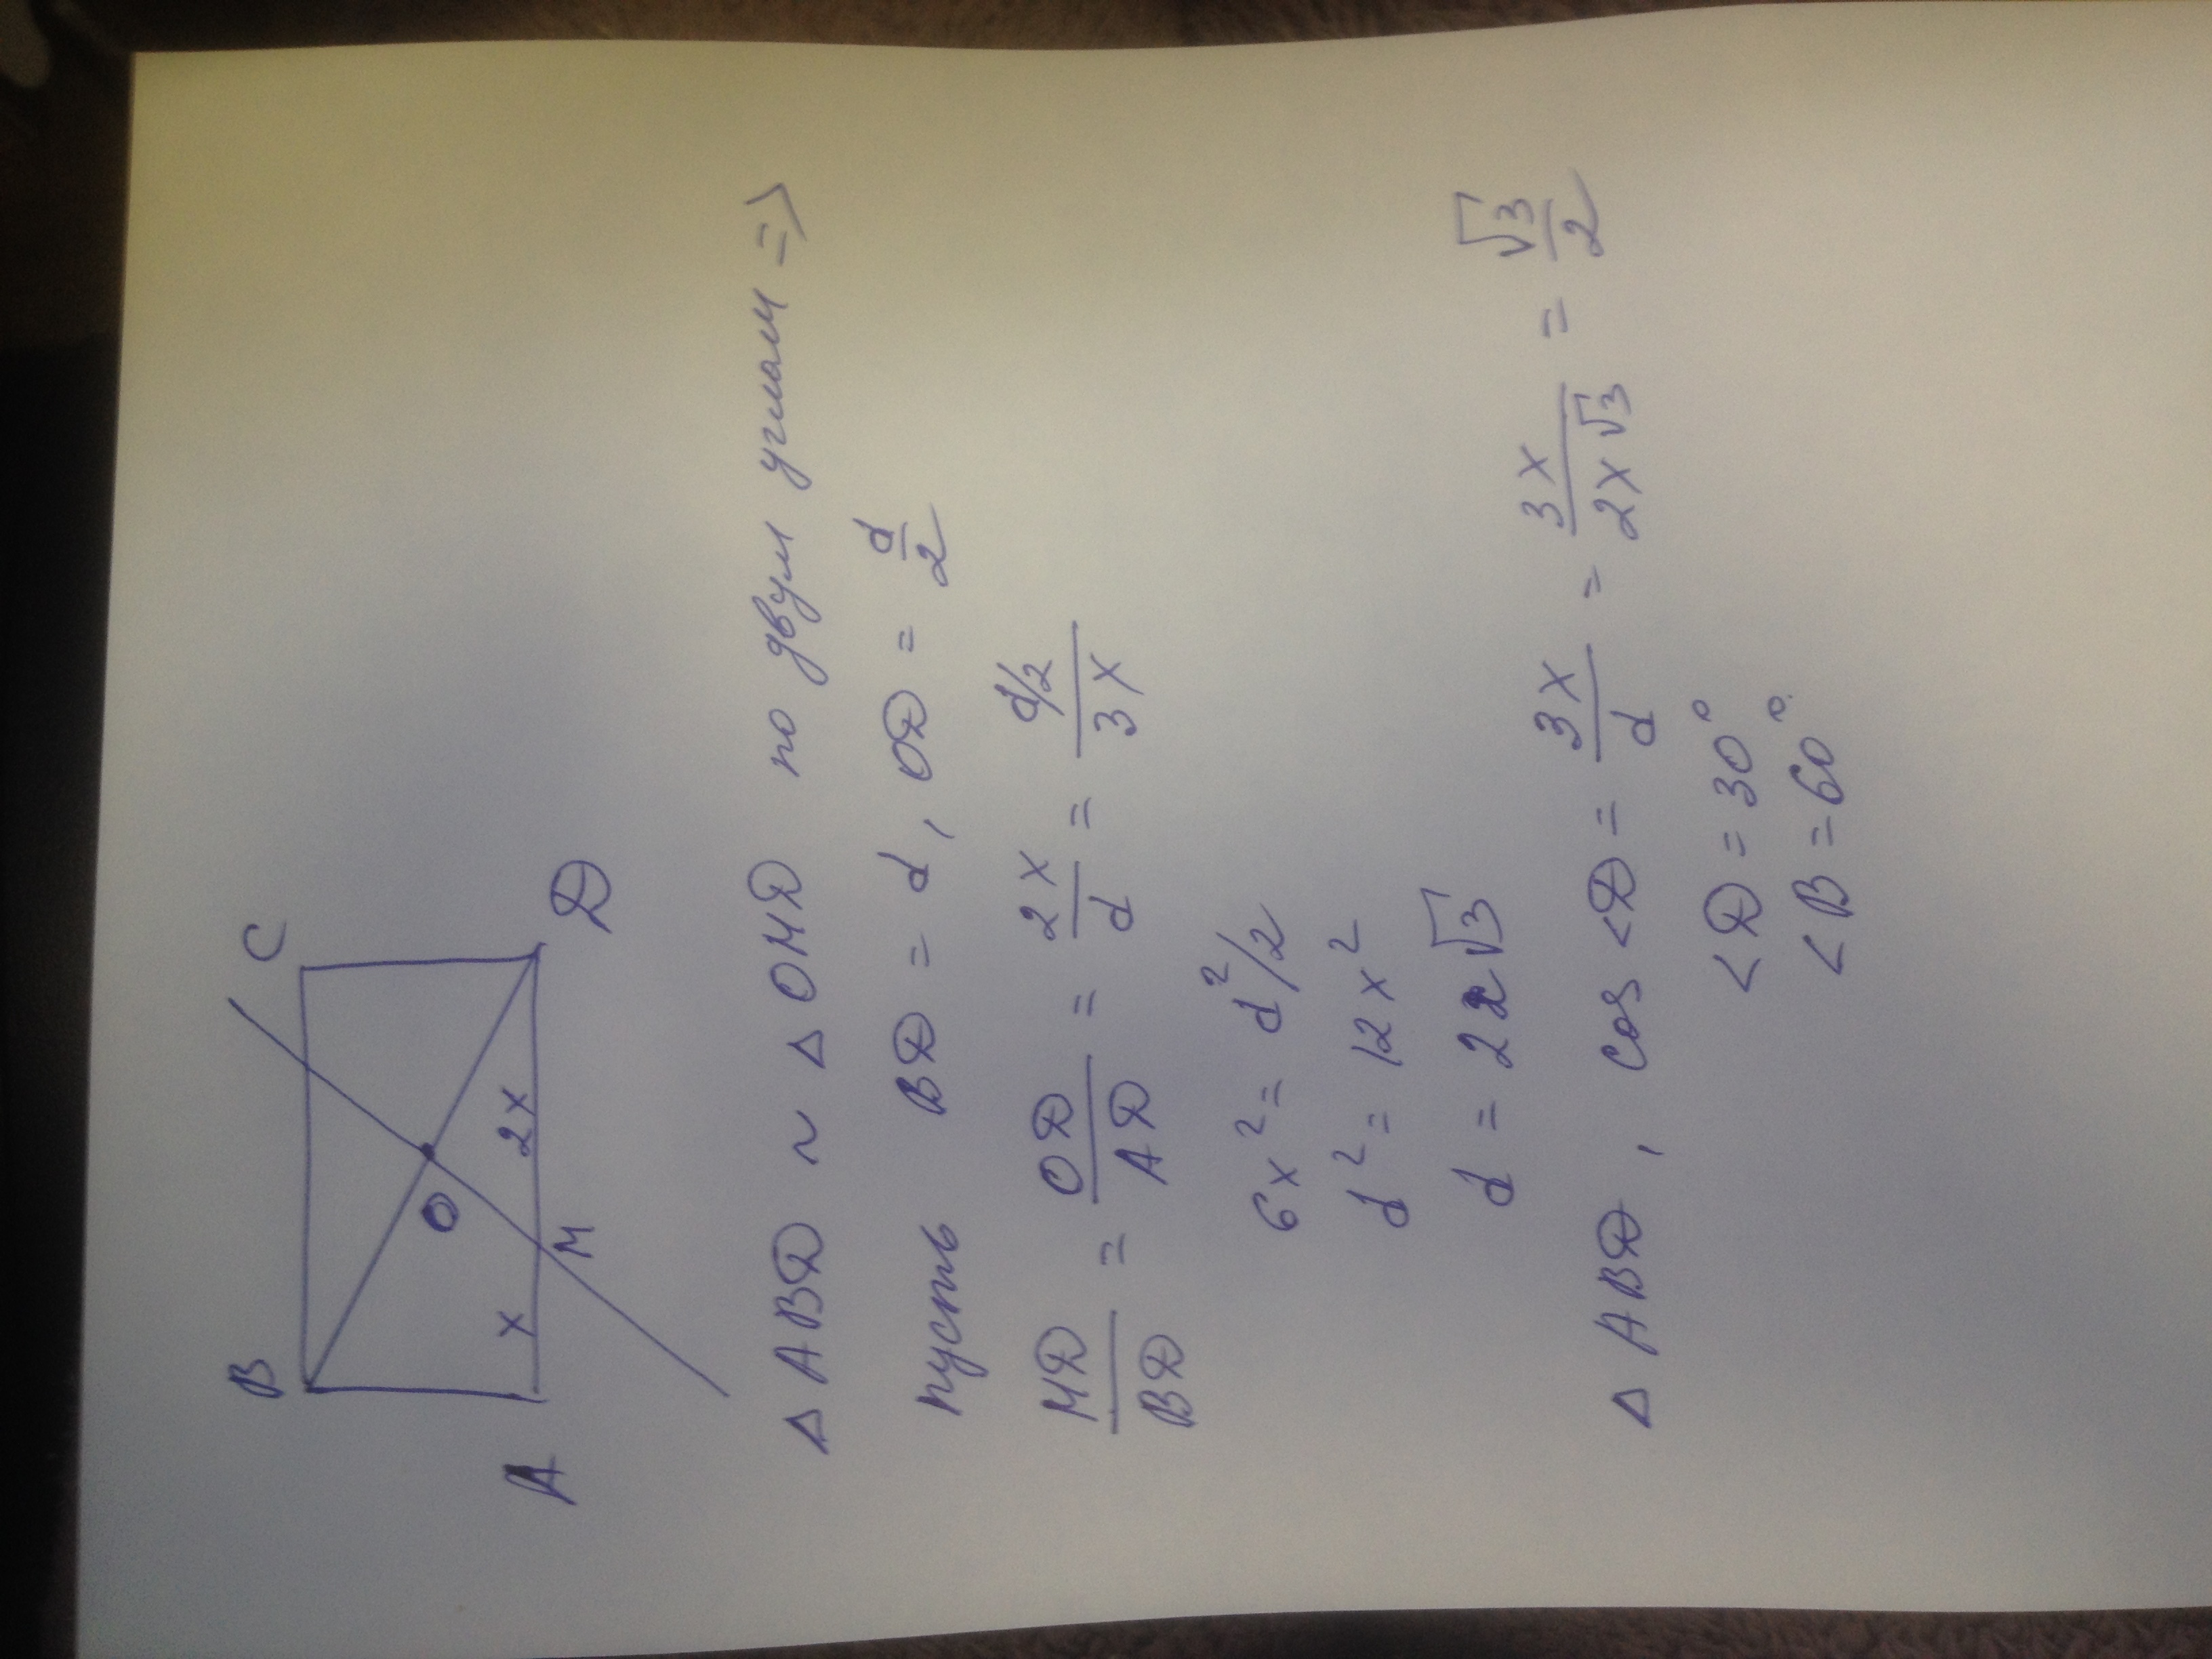 B C
O
x 2x
A M D
Δ ABD ~ Δ OMD по двум углам =>
пусть BD = d, OD = d/2
MD/BD = OD/AD = 2x/d = (d/2)/3x
6x² = d²/2
d² = 12x²
d = 2x√3
Δ ABD, cos <D = 3x/d = 3x/2x√3 = √3/2
<D = 30°
<B = 60°.